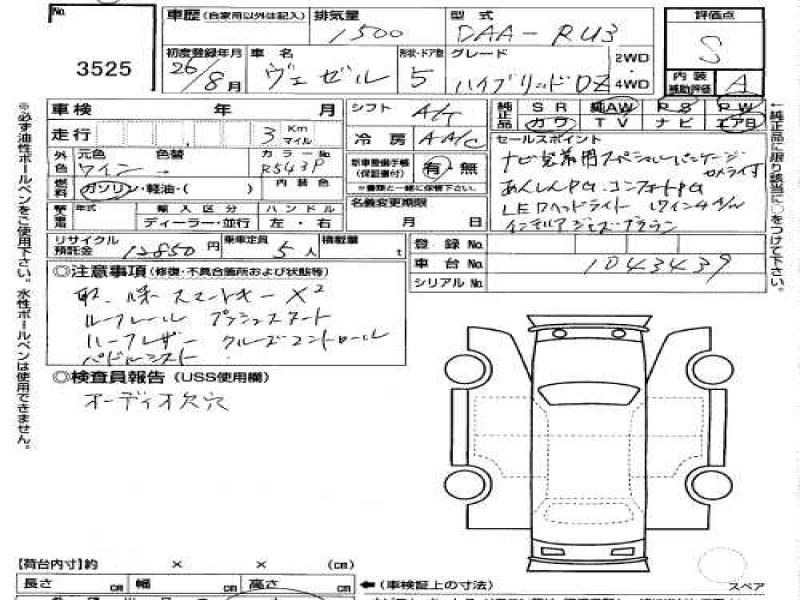 No. 3525
車歴 (自家用以外は記入) 排気量 1500 型式 DAA-RU3 評価点 S
初度登録年月 26/8月 車名 ヴェゼル 形状・ドア数 5 グレード ハイブリッドDZ 2WD・4WD 内装補助評価 A
車検 年 月 シフト A/T 純正品 SR 純AW PS PW
カワ TV ナビ エアB
走行 3 Km マイル 冷房 AAC セールスポイント
外色 元色 ワイン 色替 カラーNo R543P 内装色
新車整備手帳(保証書付) 有・無 ※書類と一緒に保管下さい。
燃料 ガソリン・軽油・( )
ナビ装着用スペシャルパッケージ カメラ付
あんしんPG. コンフォートPG
LEDヘッドライト 17インチA/W
インテリア ジャズブラウン
年式 輸入区分 ディーラー・並行 ハンドル 左・右
名義変更期限 月 日
リサイクル預託金 12850円 乗車定員 5人 積載量 t
登録No.
車台No. 1043439
シリアルNo.
◎注意事項 (修復・不具合箇所および状態等)
取.保.スマートキー×2
ルーフレール プッシュスタート
ハーフレザー クルーズコントロール
パドルシフト
◎検査員報告 (USS使用欄)
オーディオ欠穴
【荷台内寸】約 × × (cm)
長さ cm 幅 cm 高さ cm ←(車検証上の寸法)
スペア
※必ず油性ボールペンをご使用下さい。水性ボールペンは使用できません。
←純正品に限り該当に○をつけて下さい。